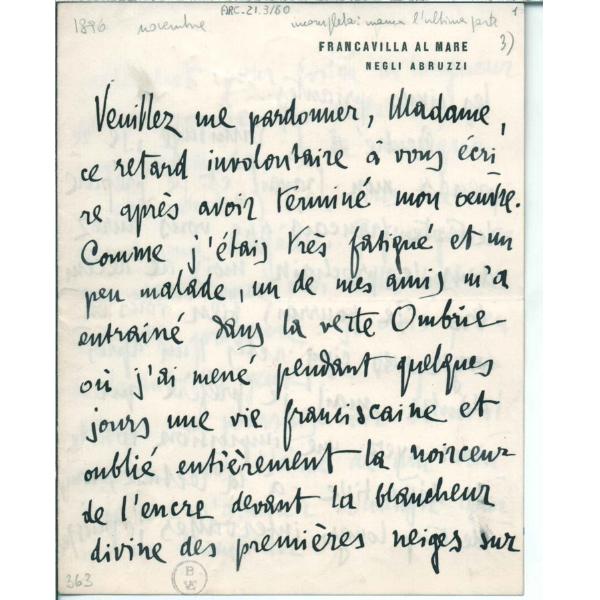 ARC.21.3/60
1896 novembre incompleta: manca l'ultima parte 1
3)
FRANCAVILLA AL MARE
NEGLI ABRUZZI
Veuillez me pardonner, Madame,
ce retard involontaire à vous écri
re après avoir terminé mon oeuvre.
Comme j'étais très fatigué et un
peu malade, un de mes amis m'a
entrainé dans la verte Ombrie
où j'ai mené pendant quelques
jours une vie franciscaine et
oublié entièrement la noirceur
de l'encre devant la blancheur
divine des premières neiges sur
363
B
VE